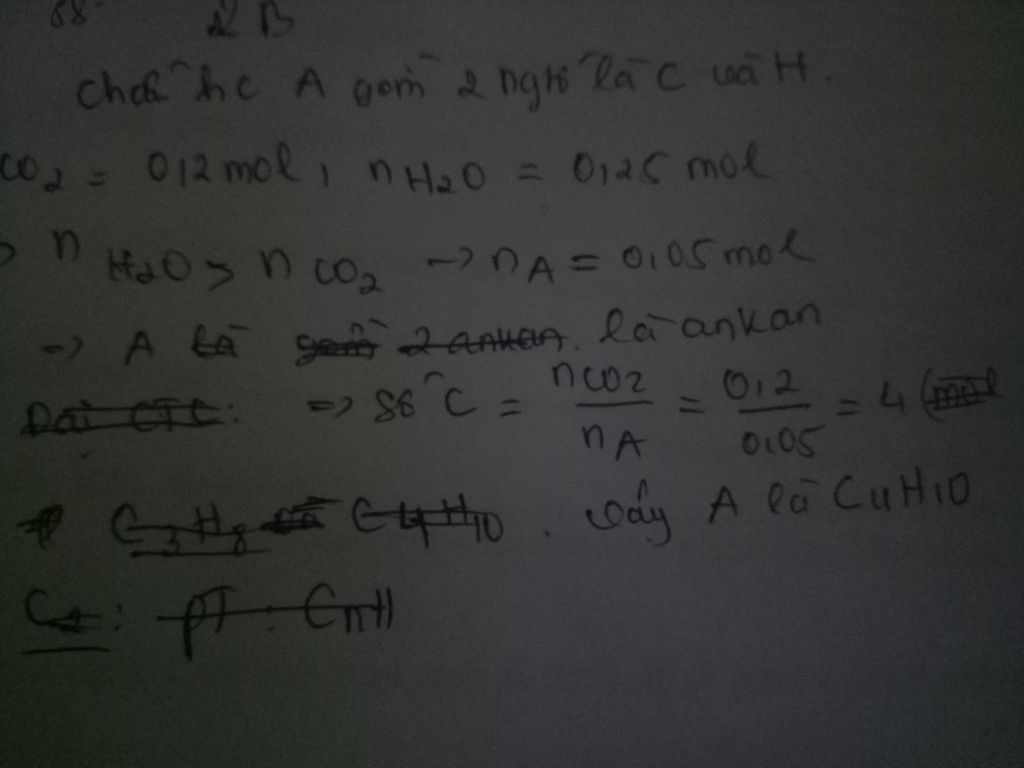 88 B
Chất hc A gồm 2 ngtố là C và H.
CO2 = 0,2 mol, nH2O = 0,25 mol
nH2O > nCO2 -> nA = 0,05 mol
=> A là gồm 2 ankan. là ankan
Dãi CTC: => số C = nCO2 / nA = 0,2 / 0,05 = 4 (mol
C3H8 là C4H10. vậy A là C4H10
C2: PT: CnH